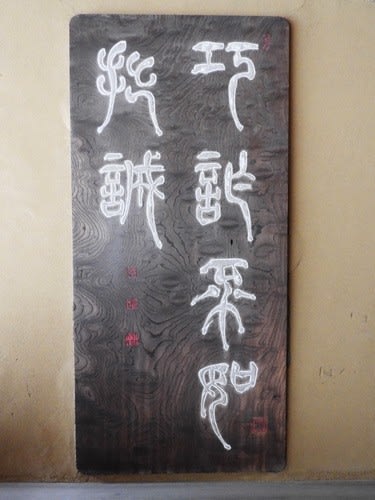 巧詐不如
拙誠